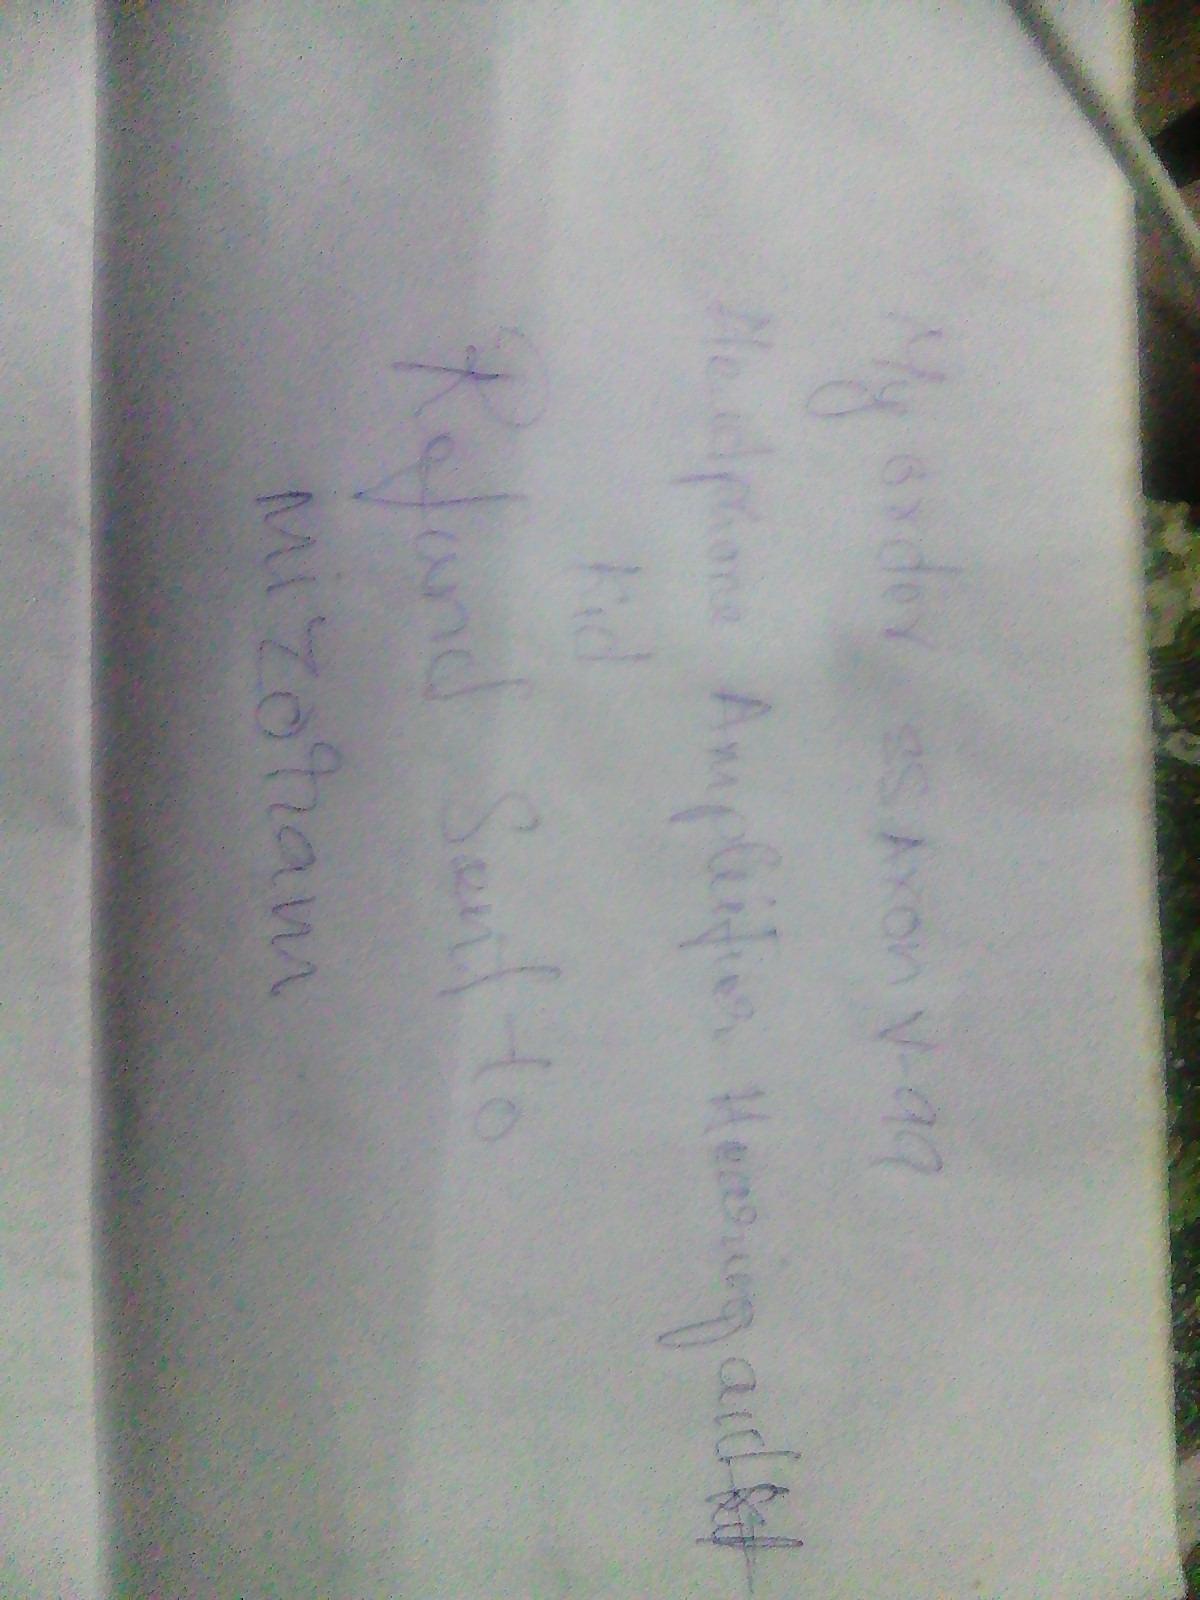 My order as Axon V-99
Headphone Amplifier Hearing aid
kid
Refund Sent to
mizoram